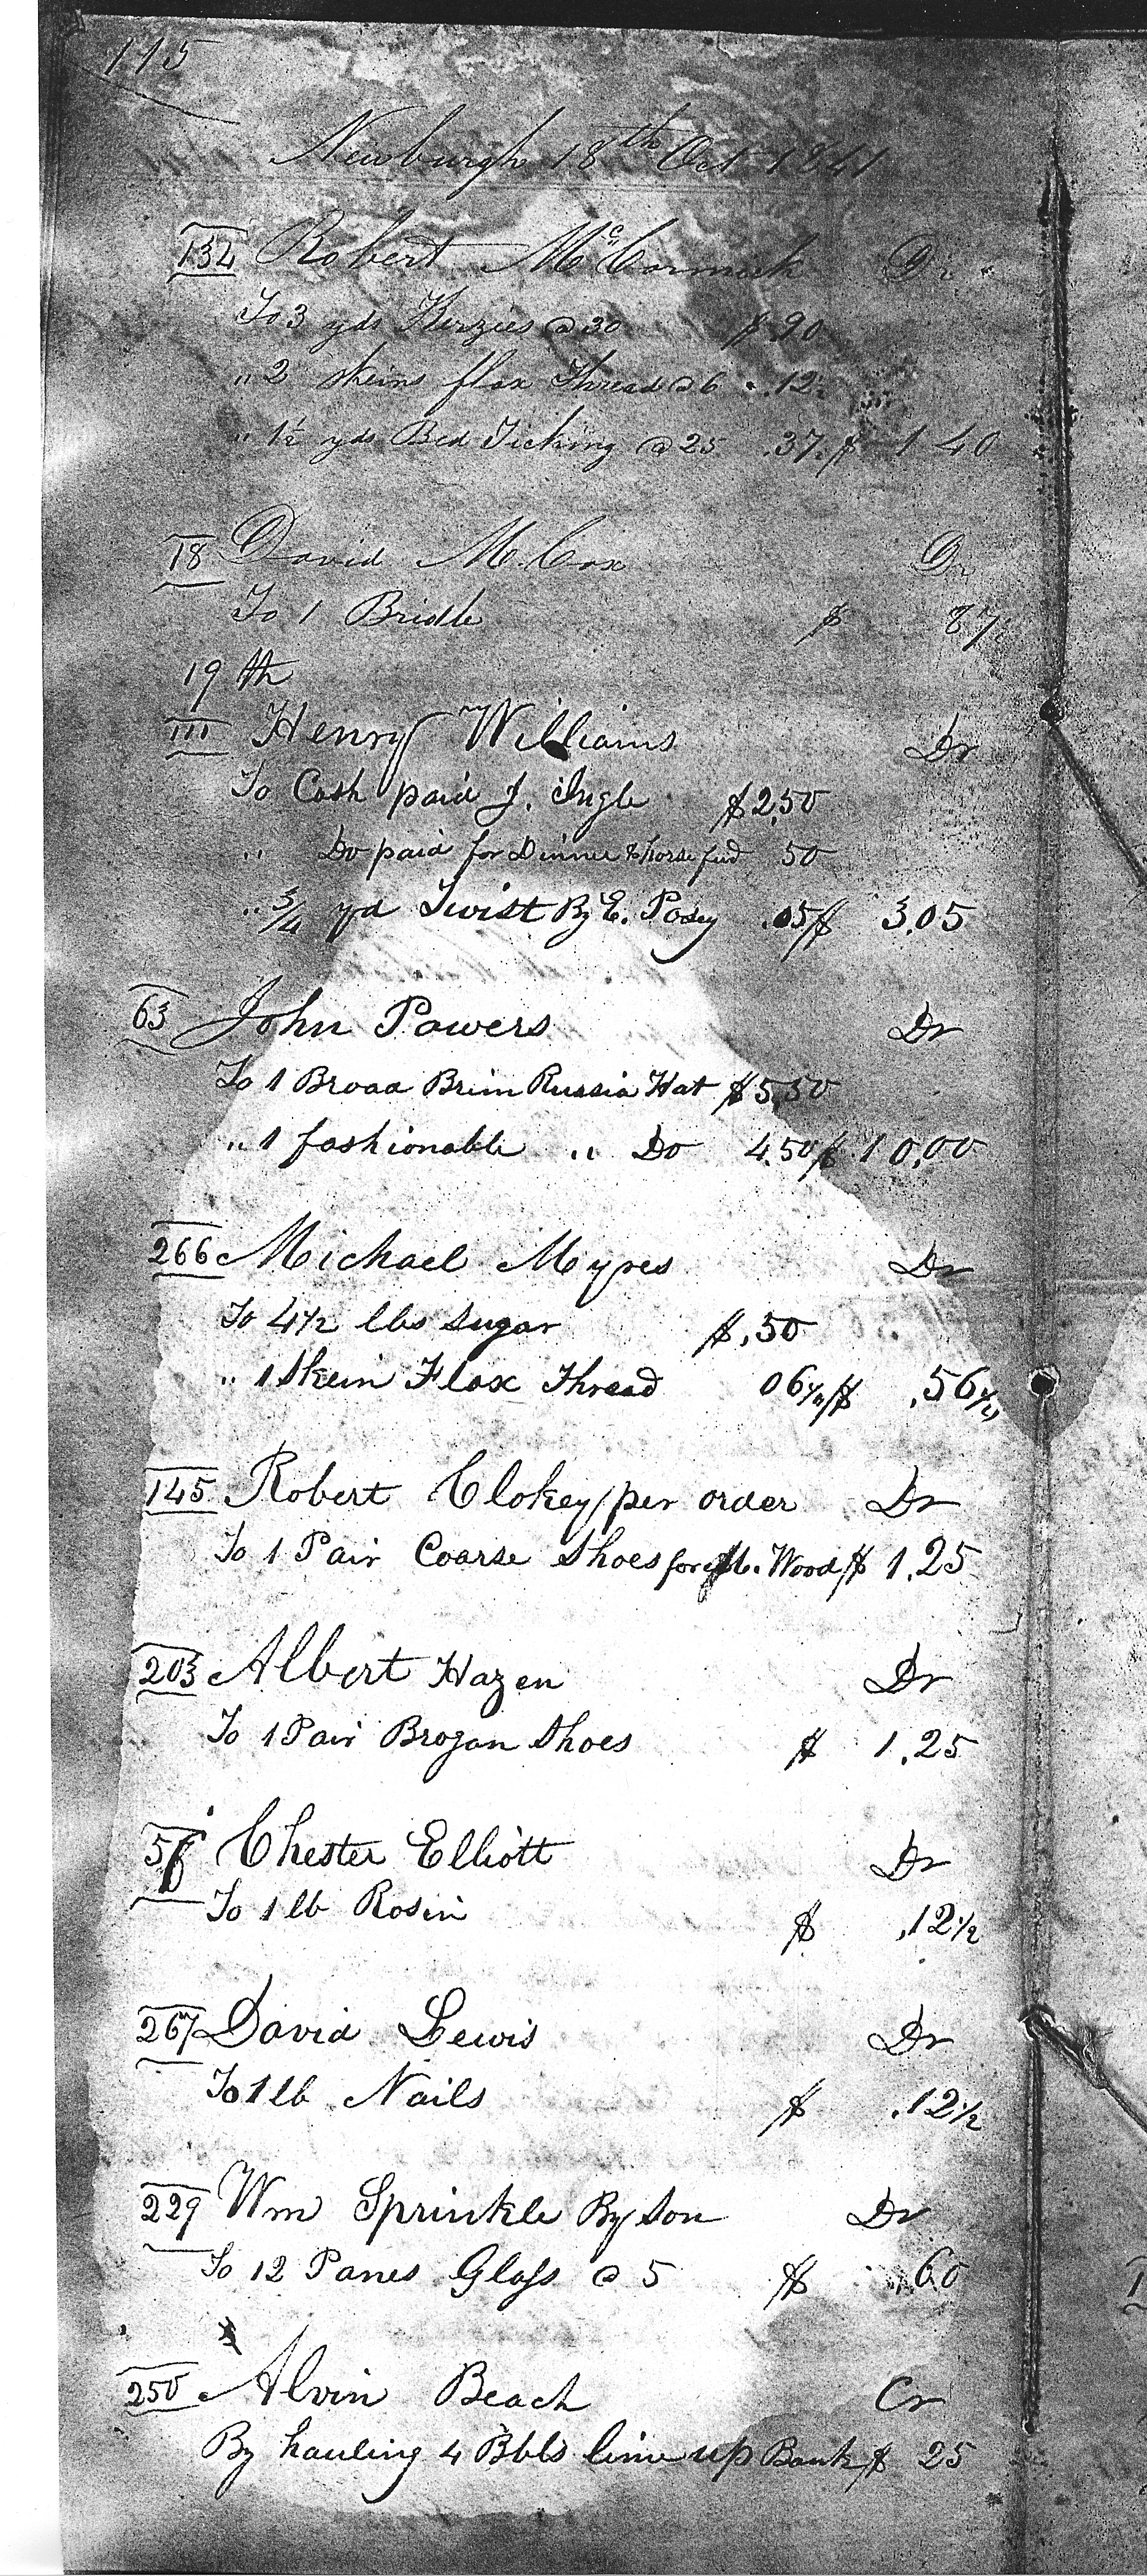 115
Newburgh 18th Oct 1841
132 Robert McCormick Dr
To 3 yds Kerzies @ 30 $ .90
" 2 skeins flax Thread @ 6 .12½
" 1½ yds Bed Ticking @ 25 .37½ $ 1 40
18 David M. Cox Dr
To 1 Bridle $ 87½
19th
111 Henry Williams Dr
To Cash paid J. Ingle $2,50
" Do paid for Dinner & horse feed 50
" 3/4 yd Twist By E. Posey .05 $ 3.05
63 John Powers Dr
To 1 Broad Brim Russia Hat $5,50
" 1 fashionable " Do 4.50 $ 10,00
266 Michael Myres Dr
To 4½ lbs Sugar $ .50
" 1 Skein Flax Thread 06¼ $ .56¼
145 Robert Clokey per order Dr
To 1 Pair Coarse Shoes for M. Wood $ 1.25
203 Albert Hazen Dr
To 1 Pair Brogan Shoes $ 1.25
Chester Elliott Dr
To 1 lb Rosin $ .12½
267 David Lewis Dr
To 1 lb Nails $ .12½
229 Wm Sprinkle By Son Dr
To 12 Panes Glass @ 5 $ .60
250 Alvin Beach Cr
By hauling 4 Bbls lime up Bank $ 25